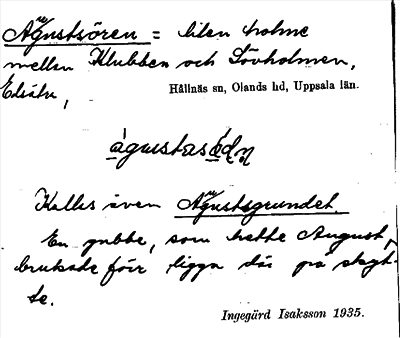 Agustsören = liten holme
mellan Klubben och Lövholmen,
Edsätra,
Hållnäs sn, Olands hd, Uppsala län.
Kallas även Agustsgrundet.
En gubbe, som hette August,
brukade förr ligga där på skogt-
te.
Ingegärd Isaksson 1935.